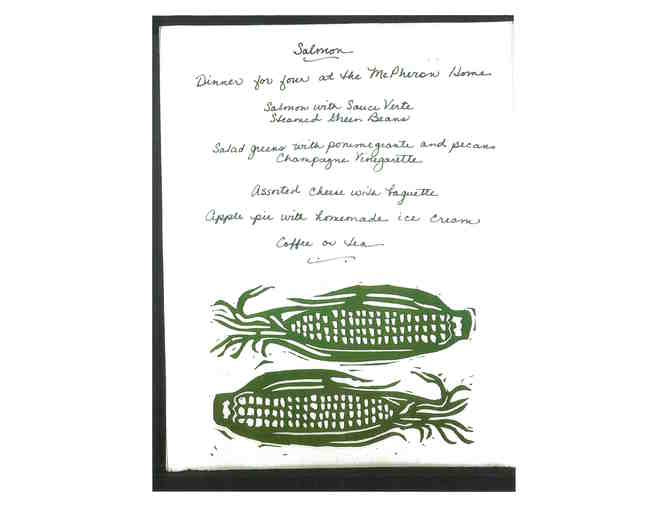 Salmon
Dinner for four at the McPheron Home
Salmon with Sauce Verte
Steamed Green Beans
Salad greens with pomegrante and pecans
Champagne Vinegarette
Assorted Cheese with baguette
Apple pie with homemade ice cream
Coffee or tea